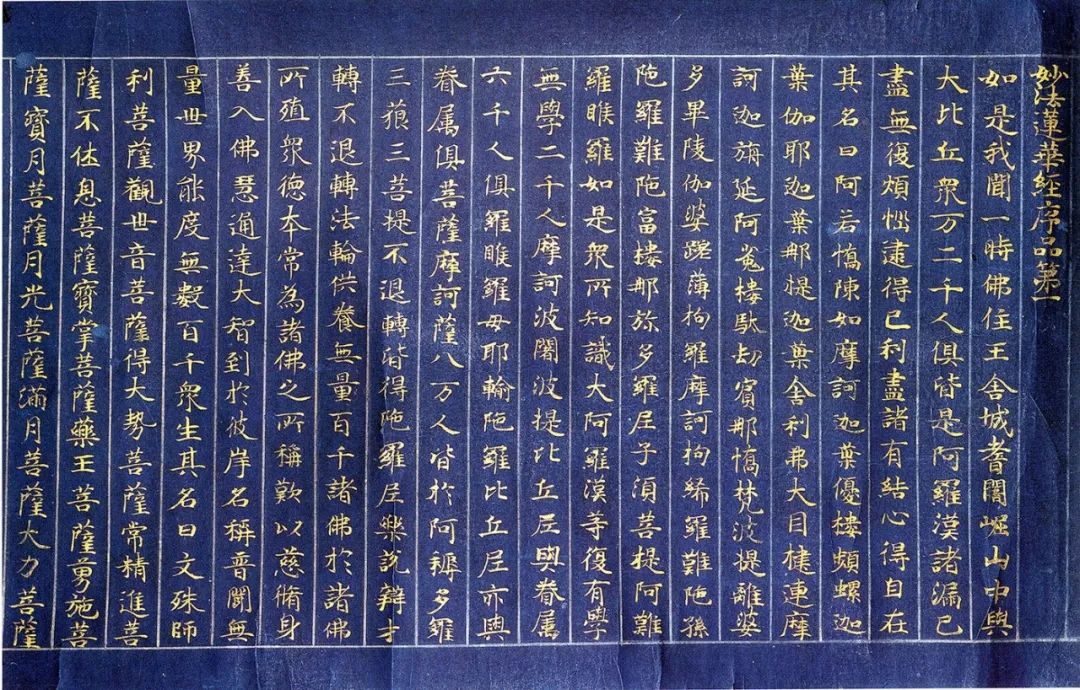 妙法蓮華経序品第一
如是我聞一時佛住王舍城耆闍崛山中與
大比丘衆万二千人俱皆是阿羅漢諸漏已
盡無復煩惱逮得已利盡諸有結心得自在
其名曰阿若憍陳如摩訶迦葉優樓頻螺迦
葉伽耶迦葉那提迦葉舍利弗大目揵連摩
訶迦旃延阿㝹樓馱劫賓那憍梵波提離婆
多畢陵伽婆蹉薄拘羅摩訶拘絺羅難陁孫
陁羅難陁富樓那弥多羅尼子湏菩提阿難
羅睺羅如是衆所知識大阿羅漢等復有學
無學二千人摩訶波闍波提比丘尼與眷属
六千人俱羅睺羅母耶輸陁羅比丘尼亦與
眷属俱菩薩摩訶薩八万人皆於阿耨多羅
三藐三菩提不退轉皆得陁羅尼樂說辯才
轉不退轉法輪供養無量百千諸佛於諸佛
所殖衆德本常為諸佛之所稱歎以慈脩身
善入佛慧通達大智到於彼岸名稱普聞無
量世界能度無數百千衆生其名曰文殊師
利菩薩觀世音菩薩得大勢菩薩常精進菩
薩不休息菩薩寶掌菩薩藥王菩薩勇施菩
薩寶月菩薩月光菩薩滿月菩薩大力菩薩